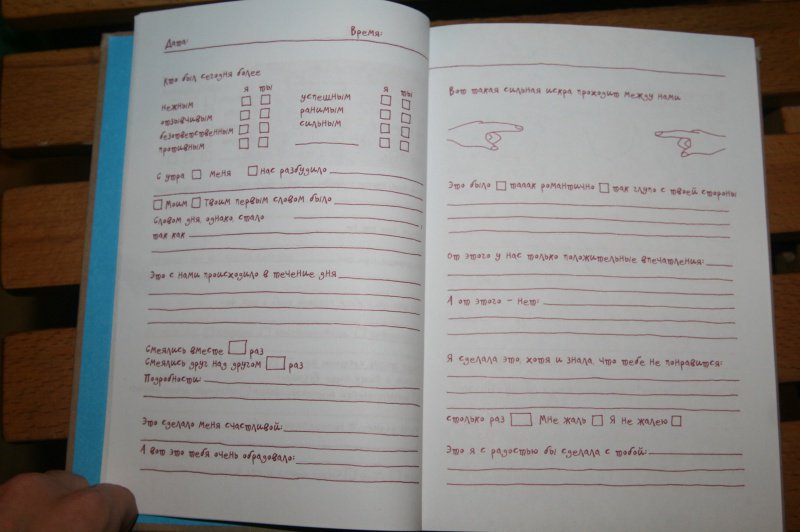 Дата: Время:
Кто был сегодня более
я ты
нежным
отзывчивым
безответственным
противным
я ты
успешным
ранимым
сильным
С утра меня нас разбудило
Моим Твоим первым словом было
Словом дня, однако, стало ,
так как
Это с нами происходило в течение дня
Смеялись вместе раз
Смеялись друг над другом раз
Подробности:
Это сделало меня счастливой:
А вот это тебя очень обрадовало:
Вот такая сильная искра проходит между нами
Это было тааак романтично так глупо с твоей стороны
От этого у нас только положительные впечатления:
А от этого – нет:
Я сделала это, хотя и знала, что тебе не понравится:
столько раз Мне жаль Я не жалею
Это я с радостью бы сделала с тобой: